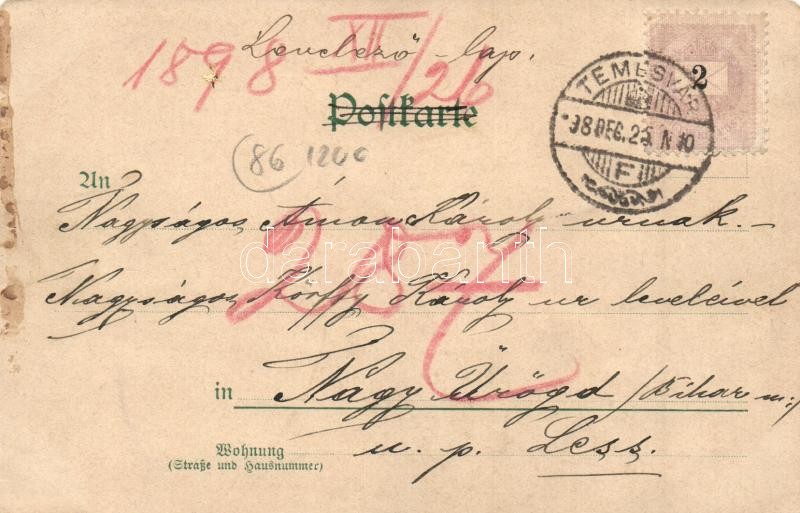 Levelező-lap.
1898 XII/26
Postkarte
2
TEMESVÁR
98 DEC. 25. N 10
F
86 1200
An
Nagyságos Ámon Károly urnak.-
257
darabanth
Nagyságos Korffy Károly ur levelével
in Nagy Ürögd /Bihar m:/
u. p. Less.
Wohnung
(Straße und Hausnummer)